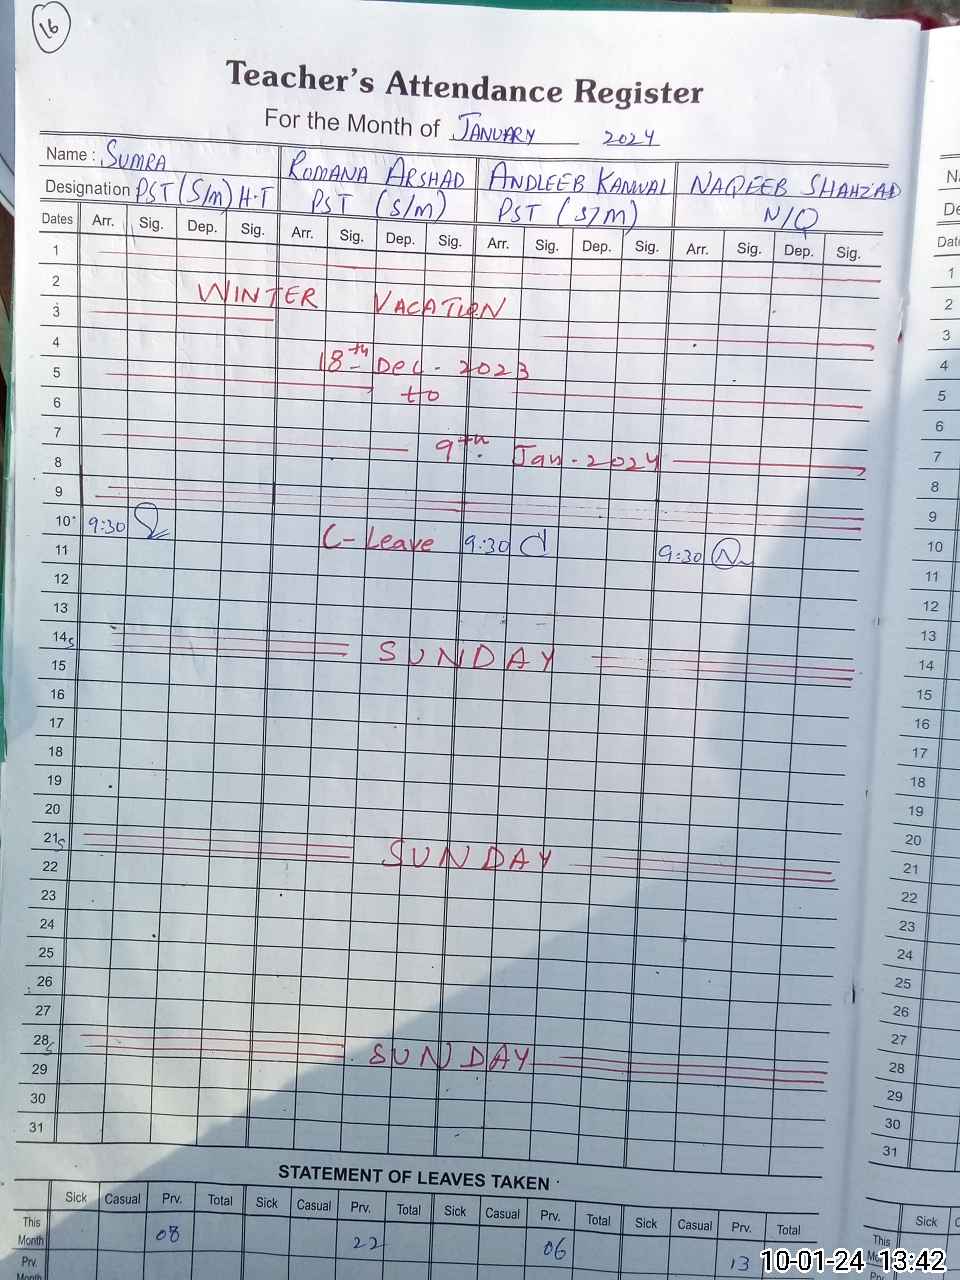 16
Teacher's Attendance Register
For the Month of JANUARY 2024
Name : SUMRA ROMANA ARSHAD ANDLEEB KANWAL NAQEEB SHAHZAD
Designation PST (S/M) H-T PST (S/M) PST (S/M) N/Q
Dates Arr. Sig. Dep. Sig. Arr. Sig. Dep. Sig. Arr. Sig. Dep. Sig. Arr. Sig. Dep. Sig.
1
2 WINTER VACATION
3
4
5 18th Dec - 2023
6 to
7
8 9th Jan - 2024
9
10 9:30 C-Leave 9:30 9:30
11
12
13
14 S SUNDAY
15
16
17
18
19
20
21 S SUNDAY
22
23
24
25
26
27
28 S SUNDAY
29
30
31
STATEMENT OF LEAVES TAKEN
Sick Casual Prv. Total Sick Casual Prv. Total Sick Casual Prv. Total Sick Casual Prv. Total
This Month 08 22 06 13
Prv. Month
1
2
3
4
5
6
7
8
9
10
11
12
13
14
15
16
17
18
19
20
21
22
23
24
25
26
27
28
29
30
31
Sick
This
10-01-24 13:42